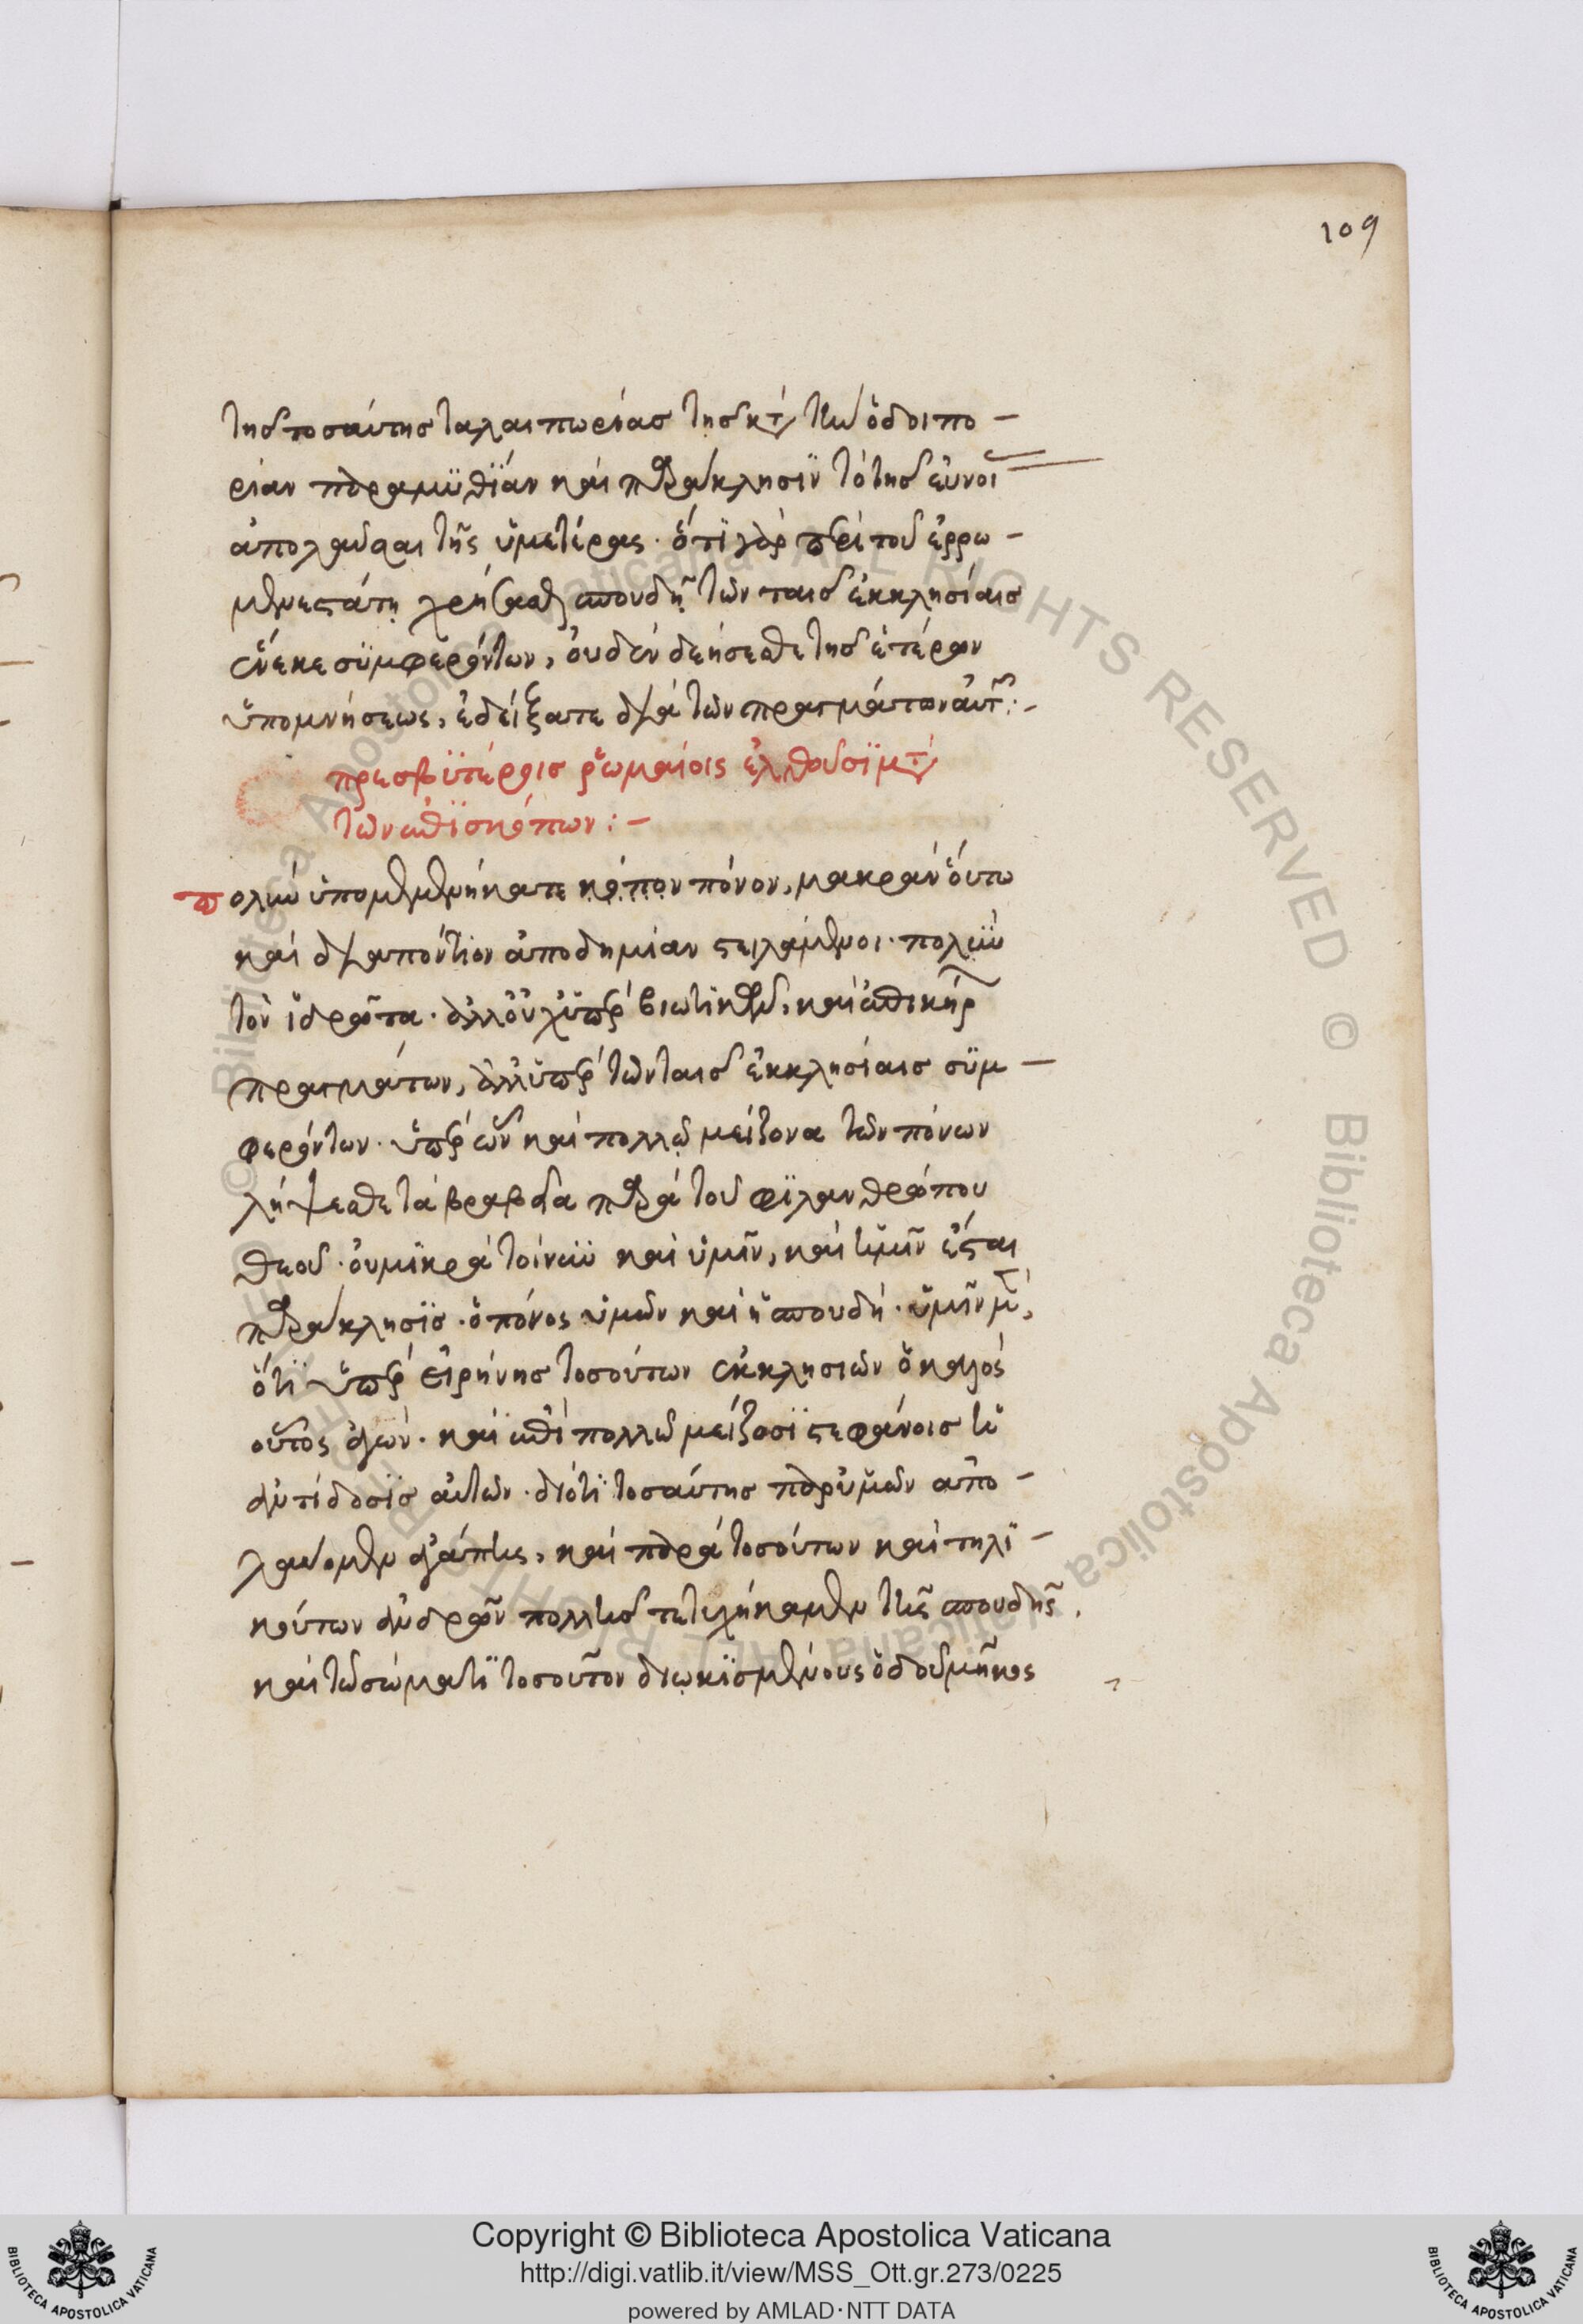 109
τῆς τοσαύτης ταλαιπωρίας τῆς κατὰ τὴν ὁδοιπο-
ρίαν παραμϋθΐαν καὶ παράκλησϊν τὸ τῆς εὐνοί
ἀπολαῦσαι τῆς ὑμετέρας. ὅτϊ γὰρ περὶ τοῦ ἐρρω-
μενεστάτῃ χρήσασθαι σπουδῇ τῶν ταῖς ἐκκλησίαις
ἕνεκε σϋμφερόντων, οὐδὲν δεήσεσθε τῆς ἑτέρων
ὑπομνήσεως, ἐδείξατε διὰ τῶν πραγμάτων αὐτῶν:-
πρεσβϋτέροις ῥωμαίοις ἐλθοῦσϊ μετὰ
τῶν ἐπϊσκόπων:-
πολιὺ ὑπομεμενήκατε κόπον πόνον, μακρὰν οὕτω
καὶ διαπόντιον ἀποδημίαν στειλάμενοι. πολεϊὺ
τὸν ἱδρῶτα. ἀλλ' οὐχ ὑπὲρ βιωτικῶν, καὶ ἐπικήρων
πραγμάτων, ἀλλ' ὑπὲρ τῶν ταῖς ἐκκλησίαις σϋμ-
φερόντων. ὑπὲρ ὧν καὶ πολλῷ μείζονα τῶν πόνων
λήψεσθε τὰ βραβεῖα παρὰ τοῦ φϊλανθρώπου
θεοῦ. οὐ μϊκρὰ τοίνυϋ καὶ ὑμῖν, καὶ ἡμῖν ἔσται
παράκλησϊς. ὁ πόνος ὑμῶν καὶ ἡ σπουδή. ὑμῖν μὲν,
ὅτϊ ὑπὲρ εἰρήνης τοσούτων ἐκκλησιῶν ὁ καλὸς
οὗτος ἀγών. καὶ ἐπὶ πολλῷ μείζοσϊ στεφάνοις ἡ
ἀντίδοσϊς αὐτῶν. διότϊ τοσαύτης παρ' ὑμῶν ἀπο-
λαύομεν ἀγάπης, καὶ παρὰ τοσούτων καὶ τηλϊ-
κούτων ἀνδρῶν πολλῆς τετυχήκαμεν τῆς σπουδῆς,
καὶ τῷ σώματϊ τοσοῦτον διῳκϊσμένους ὁδοῦ μῆκος
Copyright © Biblioteca Apostolica Vaticana
http://digi.vatlib.it/view/MSS_Ott.gr.273/0225
powered by AMLAD·NTT DATA